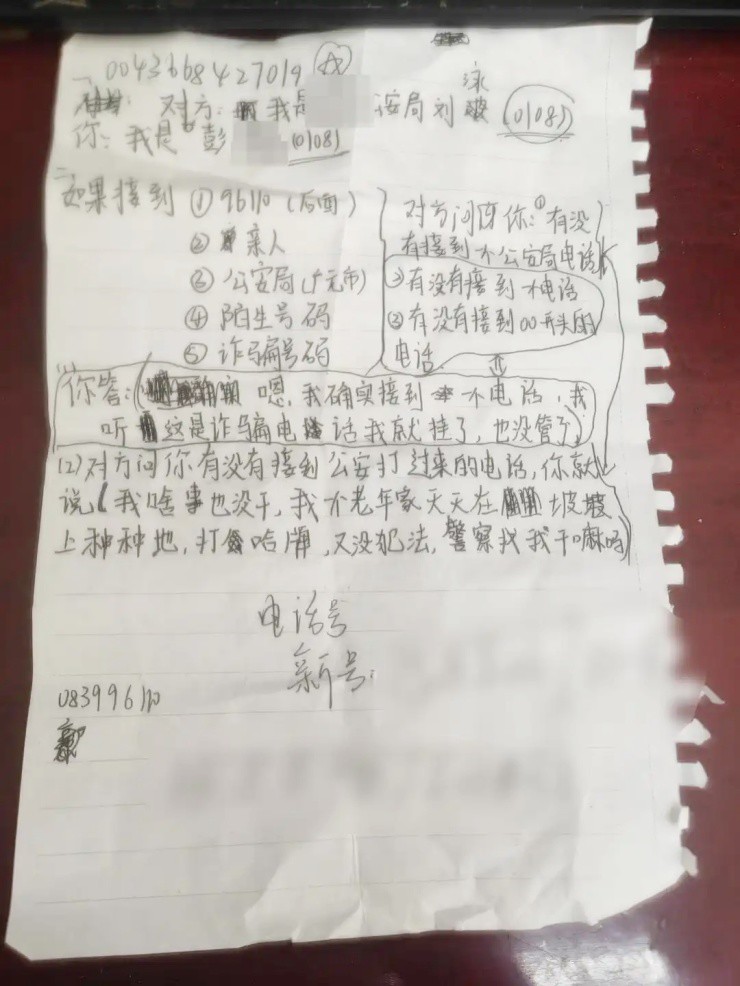 一、0043668427019
对方：我是 安局刘泳 (01081)
你：我是 彭 (01081)
二、如果接到 ① 96110 (后面)
② 亲人
③ 公安局(广元市)
④ 陌生号码
⑤ 诈骗号码
对方问你：①有没
有接到个公安局电话
②有没有接到个电话
②有没有接到00开头的
电话
(1)你答： 嗯，我确实接到一个电话，我
听 这是诈骗电话我就挂了，也没管了
(2)对方问你有没有接到公安打过来的电话，你就
说(我啥事也没干，我个老年家天天在 坡坡
上种种地，打 哈牌，又没犯法，警察找我干嘛吗
电话号
新号：
083996110